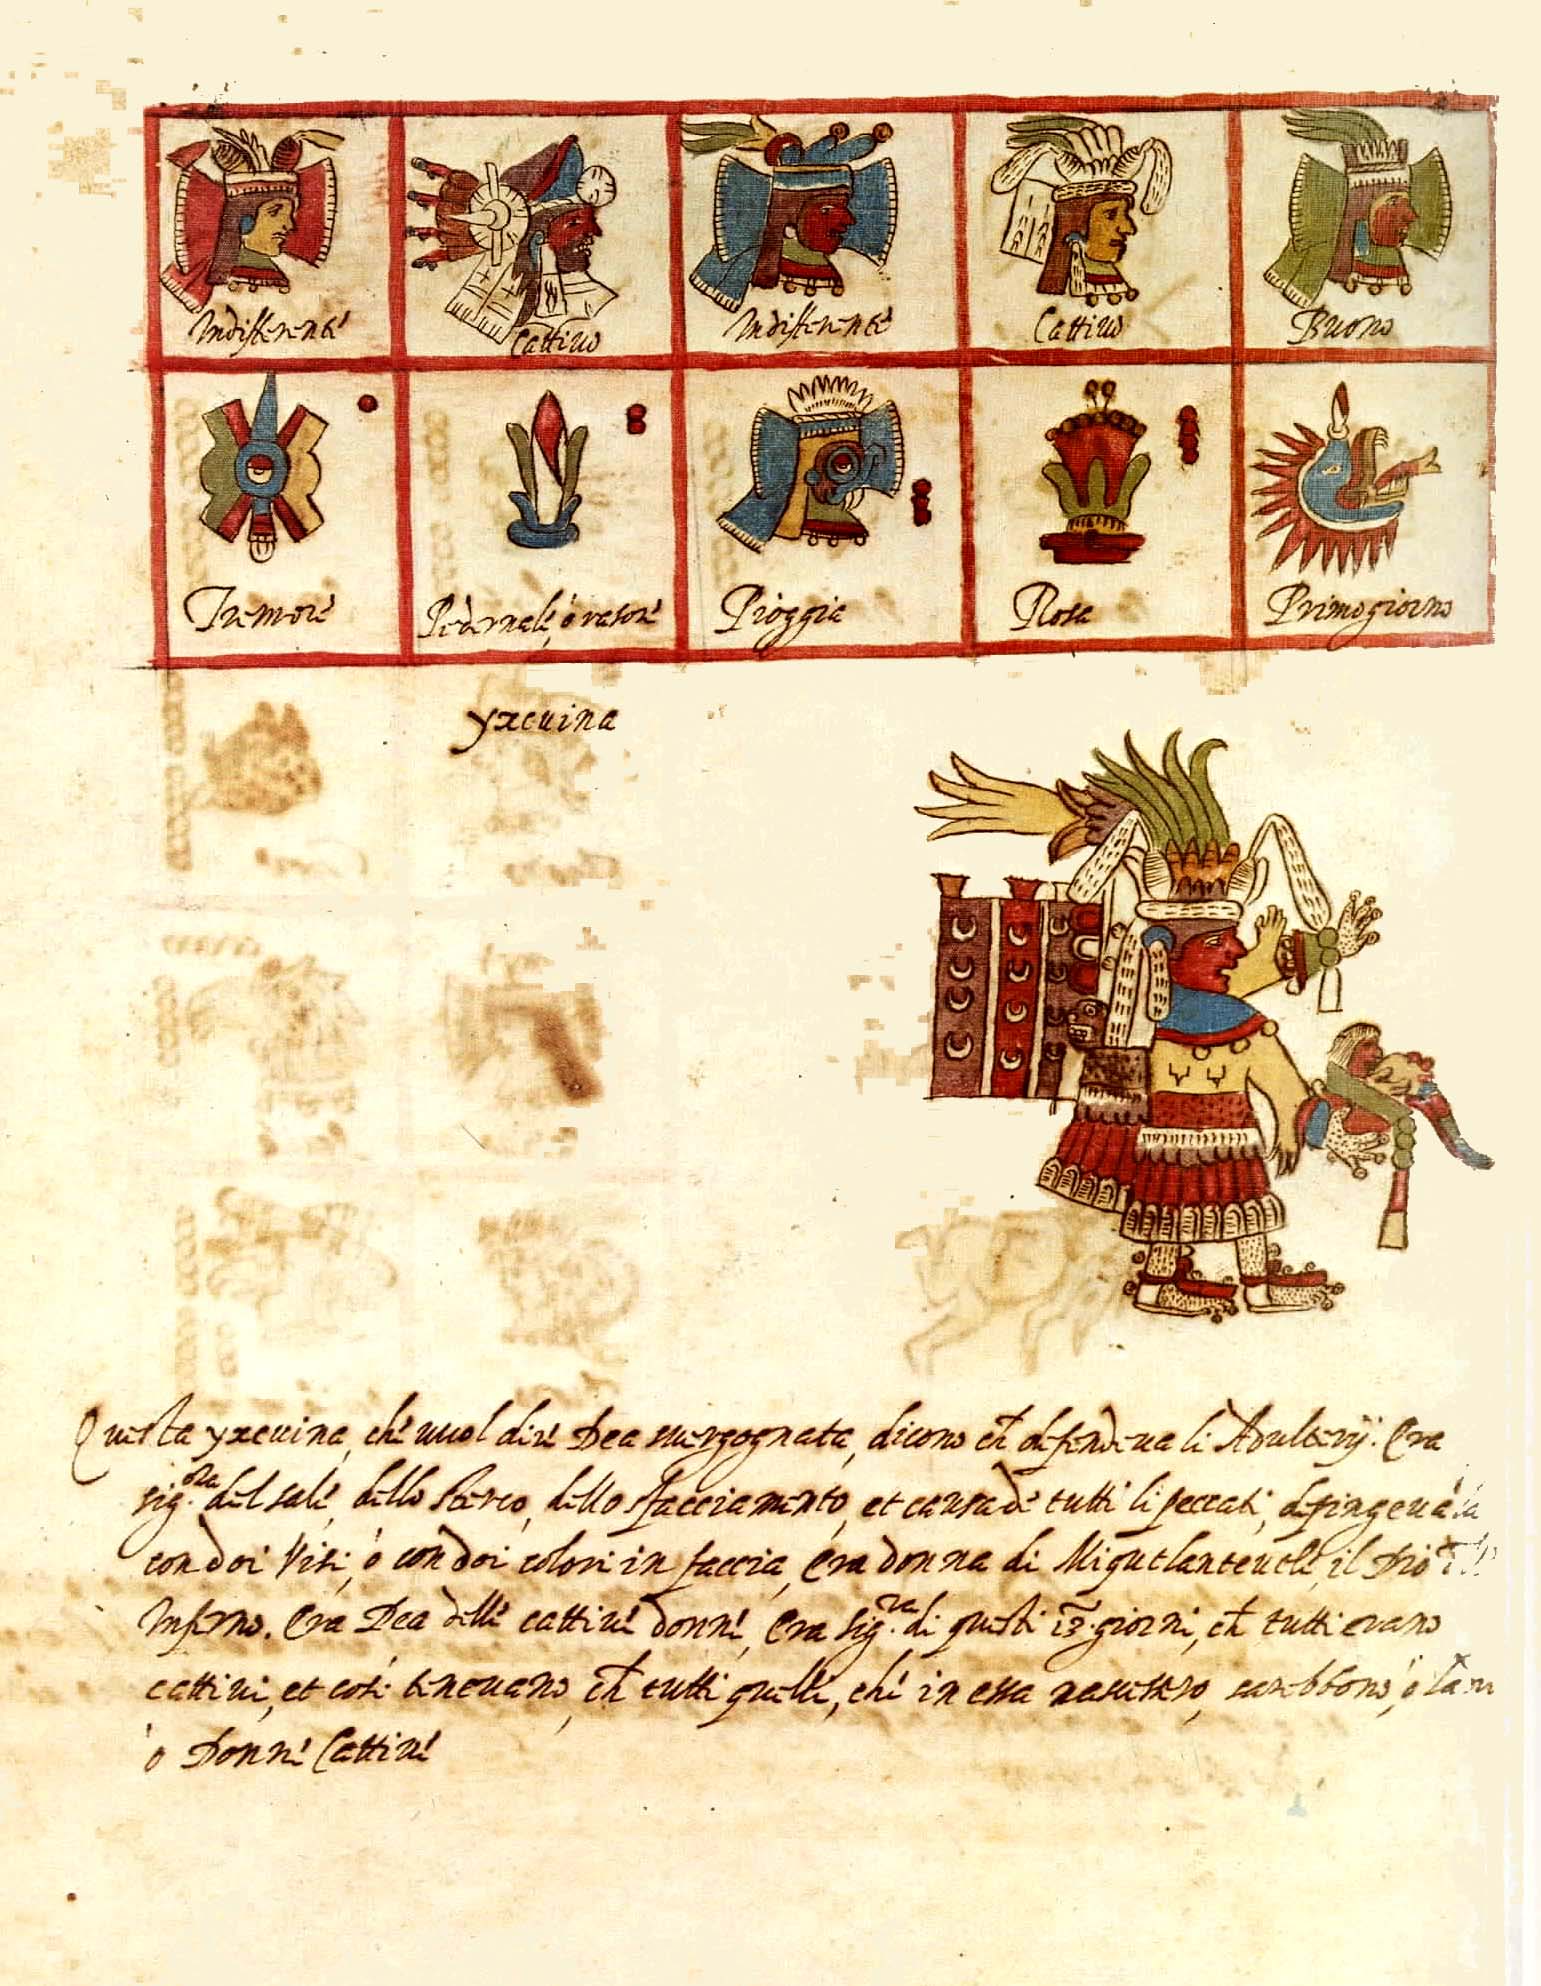 Indifferente Cattivo Indifferente Cattivo Buono
Tremore Pedernale, o rasore Pioggia Rosa Primo giorno
yxcuina
Questa yxcuina, che vuol dire Dea svergognata, dicono ch̃ defendeua li Adulterij. Era
sig.ora del sale, dello sterco, dello sfacciamento, et causa de tutti li peccati, depingeua
con doi visi, o con doi colori in faccia, Era donna di Miqutlanteutle, il Dio
Inferno. Era Dea delle cattiue donne, Era sig.ra di questi 13. giorni, ch̃ tutti erano
cattiui, et cosi teneuano, ch̃ tutti quelli, che in essa nascessero, sarebbono, o
o Donne Cattiue